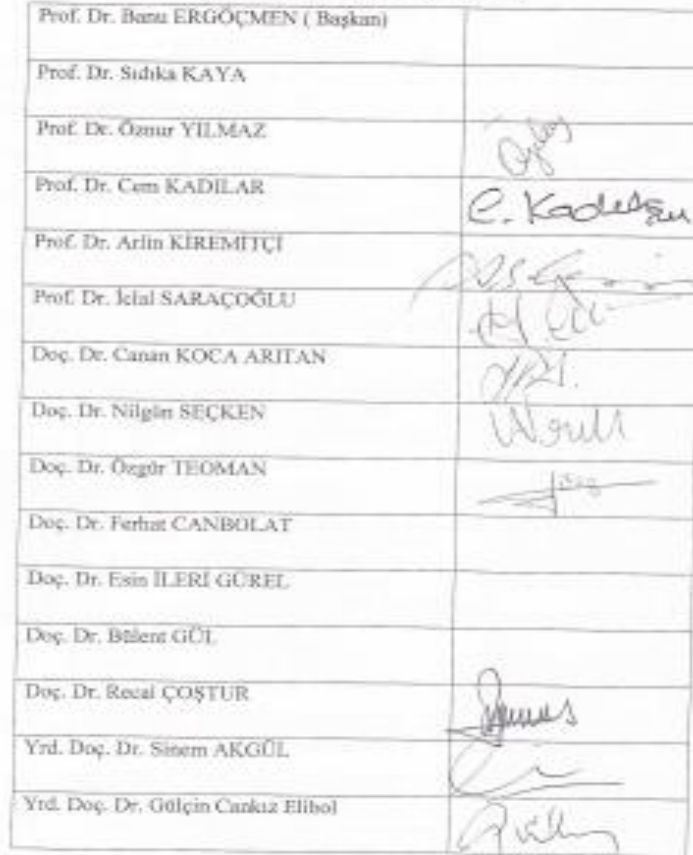 Prof. Dr. Banu ERGÖÇMEN ( Başkan)
Prof. Dr. Sıdıka KAYA
Prof. Dr. Öznur YILMAZ
Prof. Dr. Cem KADILAR
C. Kadılar
Prof. Dr. Arlin KİREMİTÇİ
Prof. Dr. İclal SARAÇOĞLU
Doç. Dr. Canan KOCA ARITAN
Doç. Dr. Nilgün SEÇKEN
Doç. Dr. Özgür TEOMAN
Doç. Dr. Ferhat CANBOLAT
Doç. Dr. Esin İLERİ GÜREL
Doç. Dr. Bülent GÜL
Doç. Dr. Recai ÇOŞTUR
Yrd. Doç. Dr. Sinem AKGÜL
Yrd. Doç. Dr. Gülçin Cankız Elibol